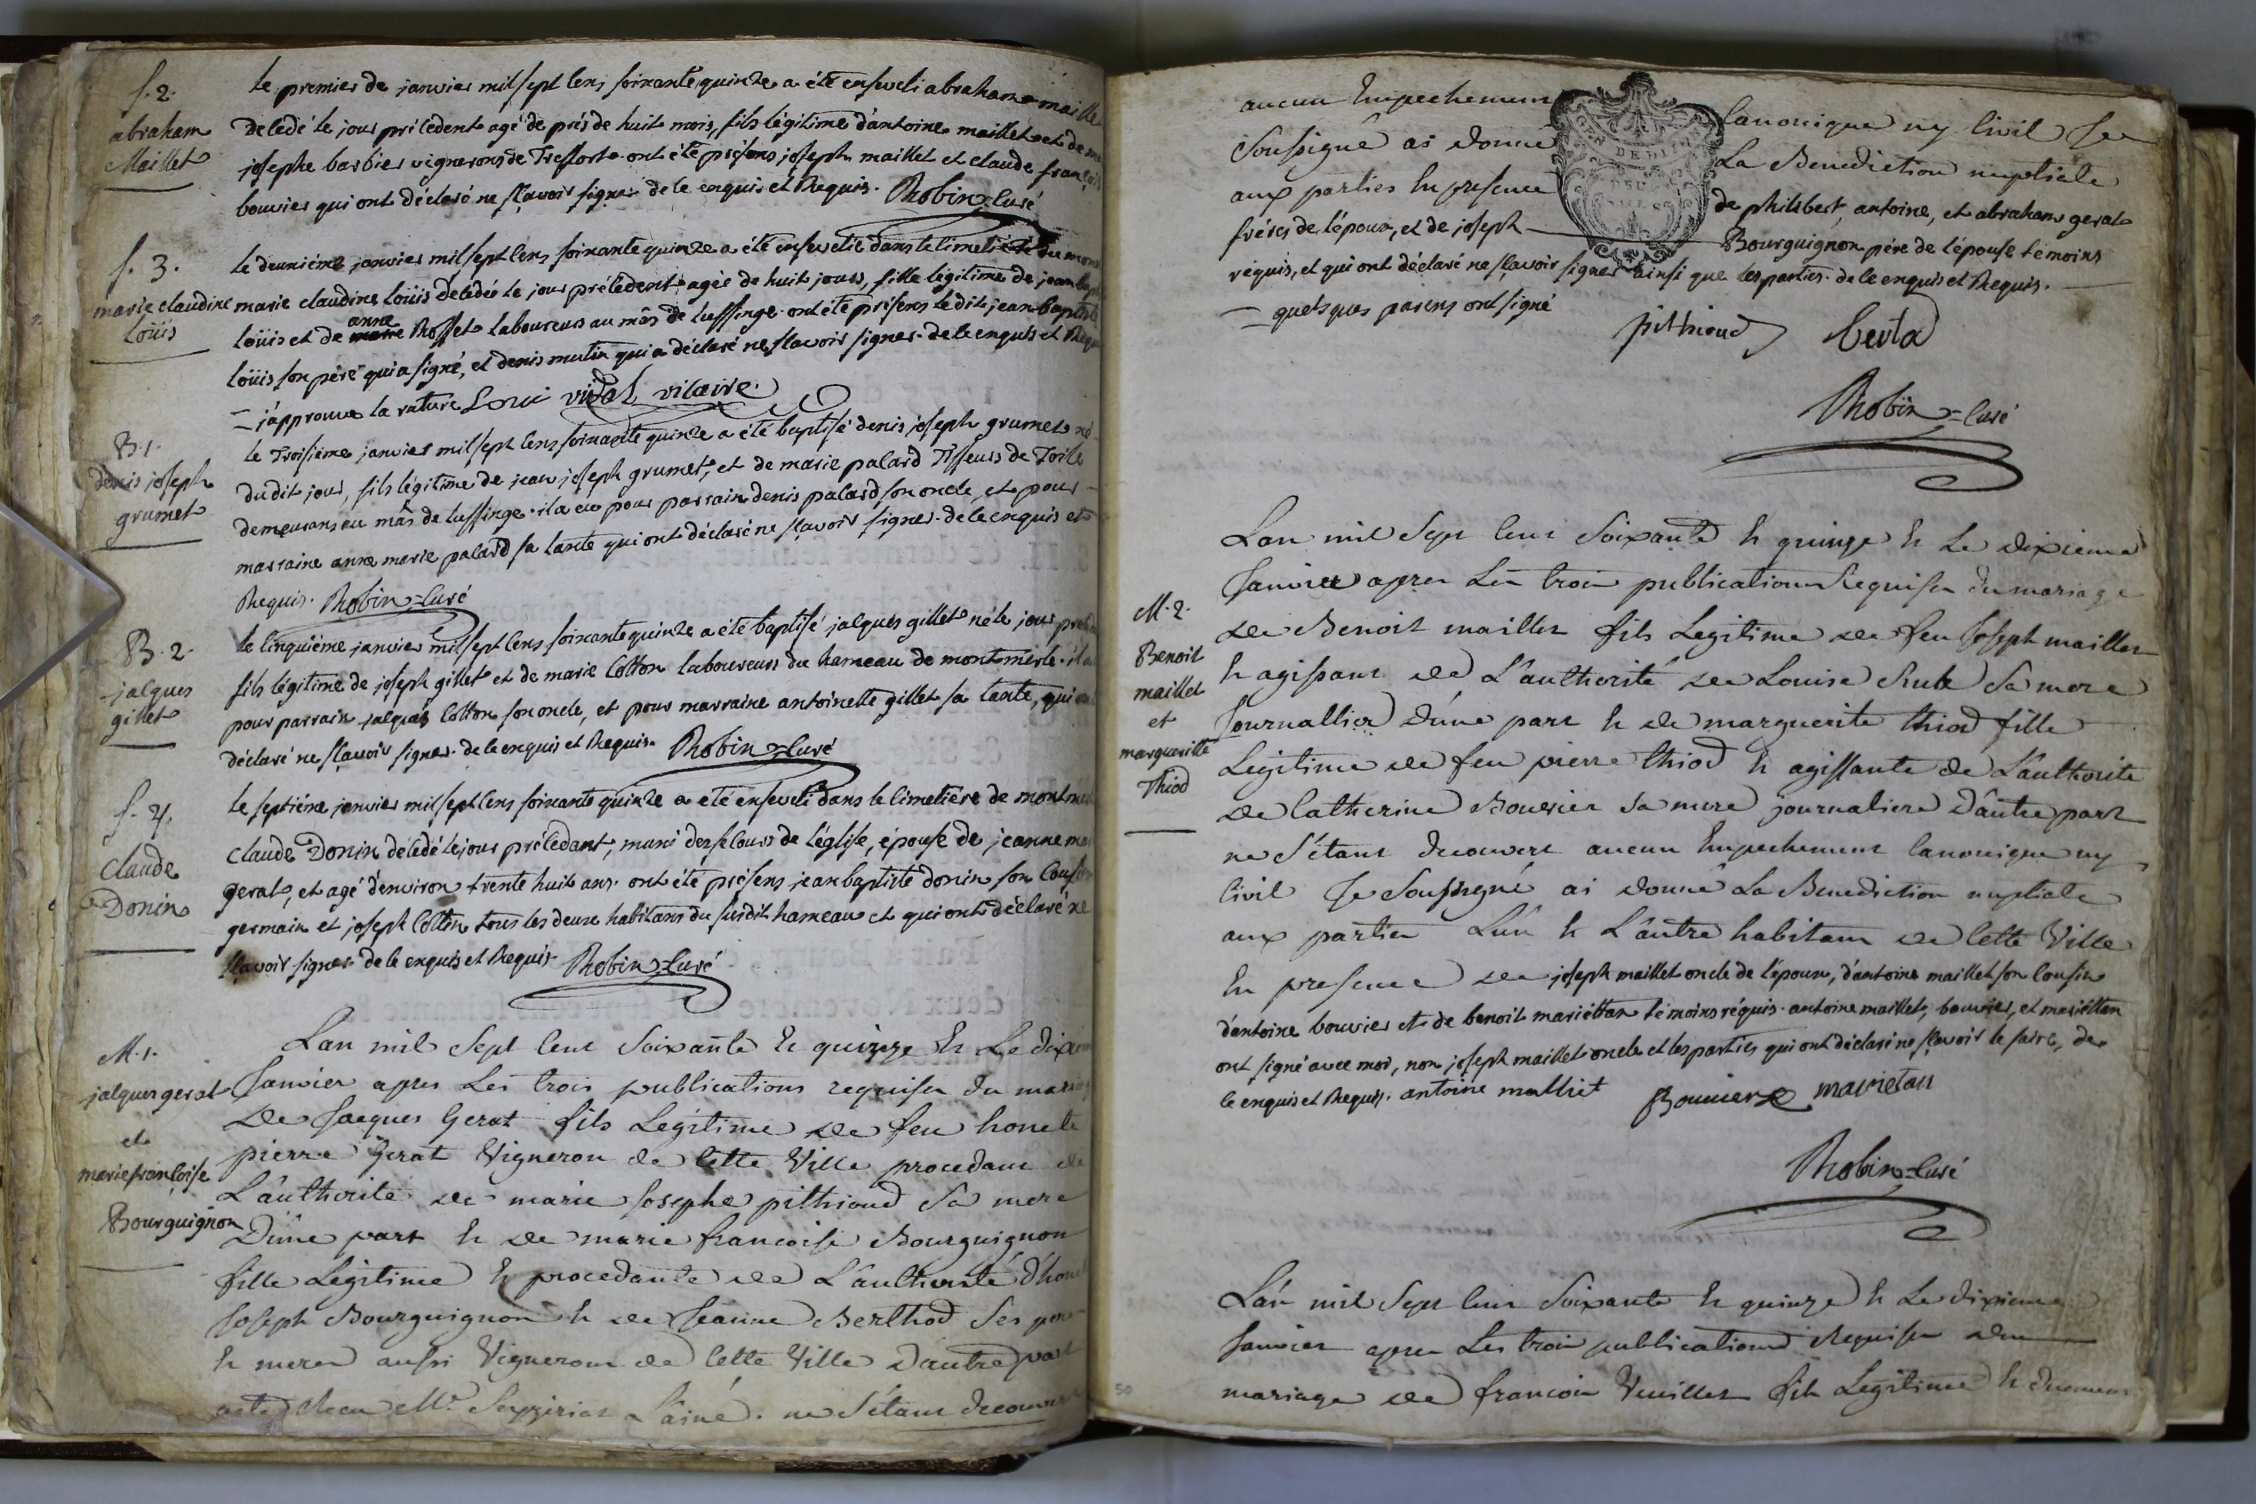 S. 2.
abraham
Maillet
le premier de janvier mil sept cens soixante quinze a été enseveli abraham maillet
décédé le jour précédent agé de prés de huit mois, fils légitime d'antoine maillet et de
josephe barbier vignerons de Treffort. ont été présens joseph maillet et claude françois
bouvier qui ont déclaré ne sçavoir signer de ce enquis et Requis. Robin=Curé
S. 3.
marie claudine
Loüis
le deuxiéme janvier mil sept cens soixante quinze a été ensevelie dans le cimetiére du mont
marie claudine Loüis décédée le jour précédent agée de huit jours, fille légitime de jean baptiste
Loüis et de anne Rosset laboureurs au mâs de lussinge. ont été présens ledit jean baptiste
Loüis son pére qui a signé, et denis mutin qui a déclaré ne sçavoir signer. de ce enquis et Requis
= j'approuve la rature Loui vidal vicaire.
B. 1.
denis joseph
grumet
le Troisiéme janvier mil sept cens soixante quinze a été baptisé denis joseph grumet né
dudit jour, fils légitime de jean joseph grumet, et de marie palard Tisseurs de Toile
demeurans au mâs de lussinge. il a eu pour parrain denis palard son oncle, et pour
marraine anne marie palard sa tante qui ont déclaré ne sçavoir signer. de ce enquis et
Requis. Robin=Curé
B. 2.
jacques
gillet
le cinquiéme janvier mil sept cens soixante quinze a été baptisé jacques gillet né le jour
fils légitime de joseph gillet et de marie Cotton laboureurs du hameau de montmerle. il a
pour parrain jacques Cotton son oncle, et pour marraine antoinette gillet sa tante, qui ont
déclaré ne sçavoir signer. de ce enquis et Requis. Robin=Curé
S. 4.
claude
Donin
le septiéme janvier mil sept cens soixante quinze a été enseveli dans le cimetiére de
claude Donin décédé le jour précédant, muni des secours de l'église, épouse de jeanne
gerat, et agé d'environ trente huit ans. ont été présens jean baptiste donin son Cousin
germain et joseph Cotton tous les deux habitans du susdit hameau et qui ont déclaré ne
sçavoir signer. de ce enquis et Requis. Robin=Curé
M. 1.
jacques gerat
et
marie françoise
Bourguignon
Lan mil sept cent soixante et quinze et le dixieme
Janvier apres les trois publications requises du mariage
de Jacques Gerat fils Legitime de feu honete
pierre Gerat Vigneron de cette Ville procedant de
L'authorite de marie Josephe pithioud sa mere
D'une part et de marie francoise Bourguignon
fille Legitime et procedante de L'authorité d'honete
Joseph Bourguignon et de Jeanne Berthod ses pere
et mere aussi Vignerons de cette Ville d'autre part
L'ainé. ne s'etant decouvert
aucun Empechement Canonique ny civil Je
Soussigné ai donné La Benediction nuptiale
aux parties En presence de philibert, antoine, et abraham gerat
fréres de l'époux, et de joseph Bourguignon pére de l'épouse témoins
réquis, et qui ont déclaré ne sçavoir signer ainsi que les parties. de ce enquis et Requis.
= quelques parens ont signé
pithioud
Robin=Curé
M. 2.
Benoit
maillet
et
marguerite
Thiod
Lan mil sept cent soixante et quinze et le dixieme
Janvier apres les trois publications Requises du mariage
de Benoit maillet fils Legitime de feu Joseph maillet
et agissant de L'authorité de Louise sa mere
Journallier d'une part et de marguerite thiod fille
Legitime de feu pierre thiod et agissante de L'authorite
de Catherine Bouvier sa mere journaliere d'autre part
ne s'étant decouvert aucun Empechement Canonique ny
civil Je Soussigné ai donné La Benediction nuptiale
aux parties L'un et L'autre habitans de Cette Ville
En presence de joseph maillet oncle de l'époux, d'antoine maillet son cousin
d'antoine bouvier et de benoit mariéttan témoins réquis. antoine maillet, bouvier, et mariéttan
ont signé avec moi, non joseph maillet oncle et les parties qui ont déclaré ne sçavoir le faire, de
ce enquis et Requis. antoine malliet Bouvier marietan
Robin=Curé
L'an mil sept cent soixante et quinze et le dixieme
Janvier apres les trois publications Requises du
mariage de francois Vuillet fils Legitime et
50